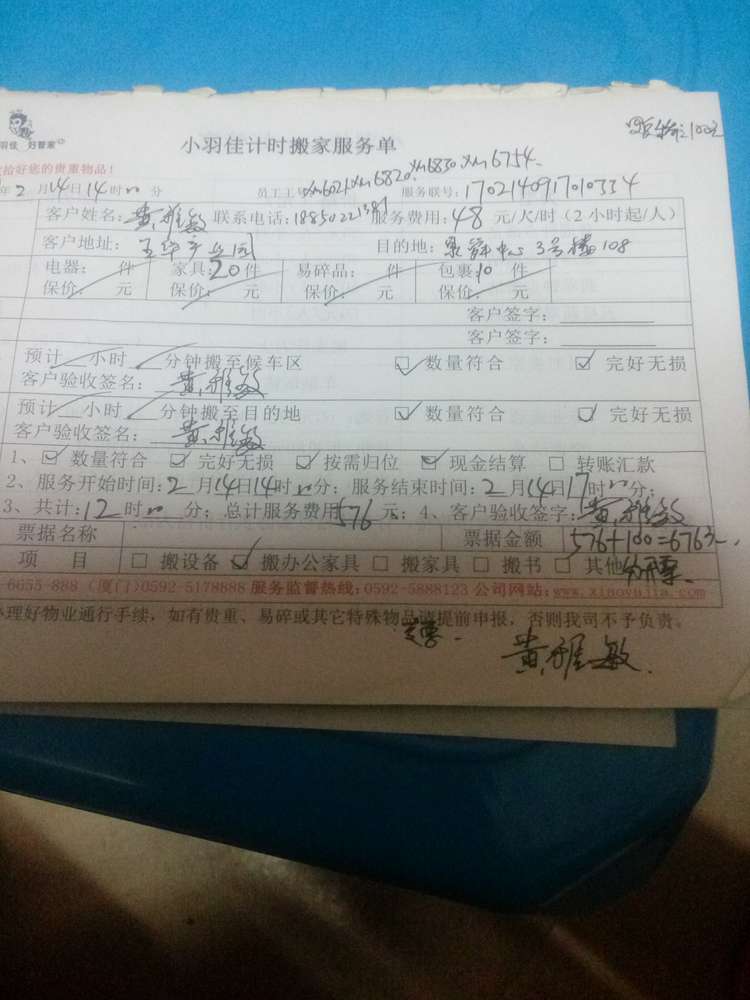 羽佳 好管家
小羽佳计时搬家服务单
拾好您的贵重物品！
年2月14日14时00分 员工工号xm6021xm6820.xm6830.xm6754 服务联号：1702140917010334
客户姓名：黄雅敏 联系电话： 服务费用：48元/人/时（2小时起/人）
客户地址： 目的地： 中心3号楼108
电器： 件 家具：20件 易碎品： 件 包裹：10件
保价： 元 保价： 元 保价： 元 保价： 元
客户签字：
客户签字：
预计 小时 分钟搬至候车区 ☑数量符合 ☑完好无损
客户验收签名：黄雅敏
预计 小时 分钟搬至目的地 ☑数量符合 ☑完好无损
客户验收签名：黄雅敏
1、☑数量符合 ☑完好无损 ☑按需归位 ☑现金结算 □转账汇款
2、服务开始时间：2月14日14时00分；服务结束时间：2月14日17时00分；
3、共计：12时00分；总计服务费用576元；4、客户签字：黄雅敏
票据名称 票据金额 576+100=676
项 目 □搬设备 ☑搬办公家具 □搬家具 □搬书 □其他
6655-888 (厦门)0592-5178888 服务监督热线：0592-5888123 公司网站：www.xiaoyujia.com
办理好物业通行手续，如有贵重、易碎或其它特殊物品请提前申报，否则我司不予负责。
黄雅敏